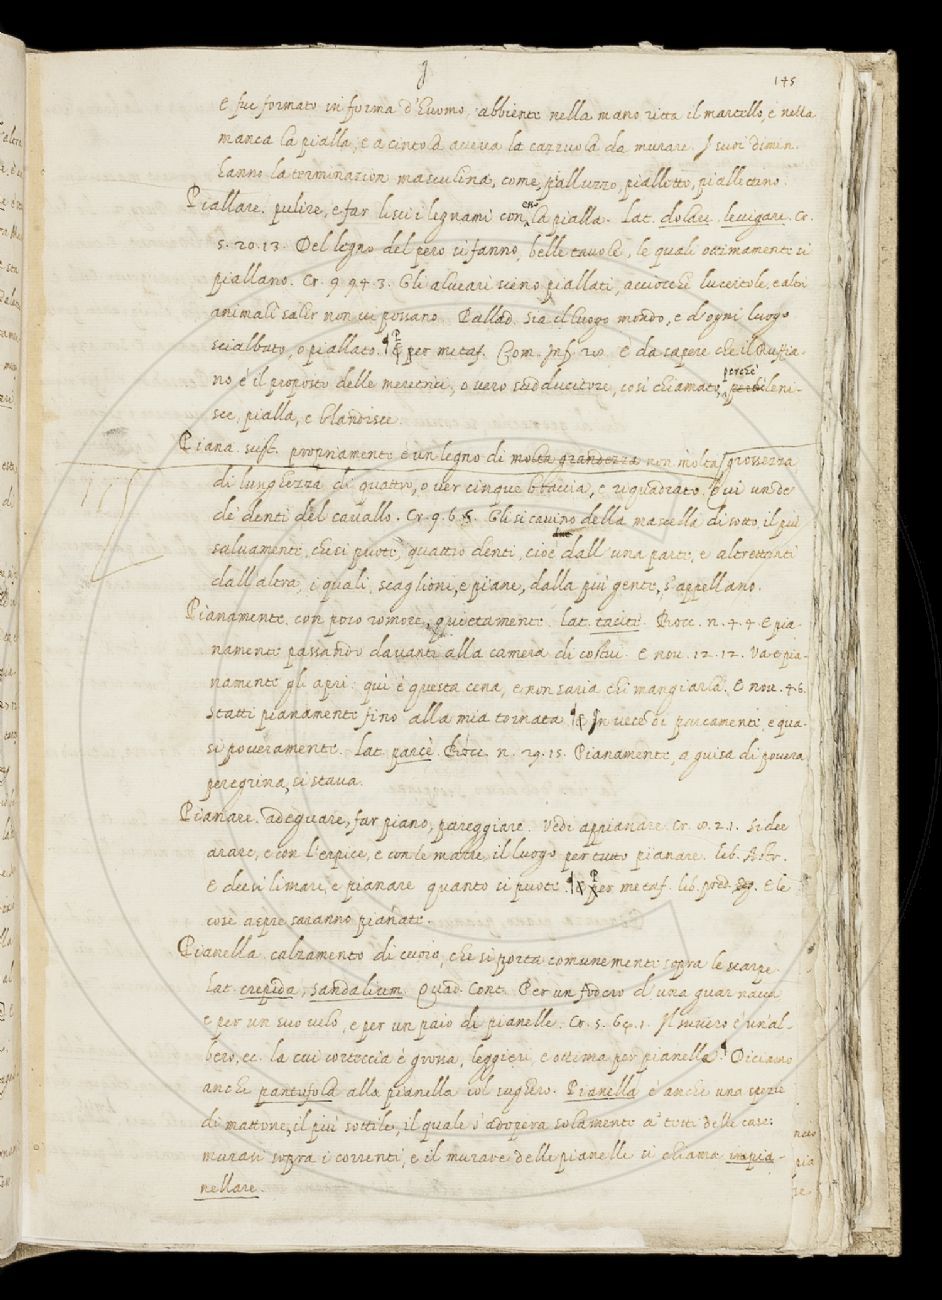 145
e fu formato in forma d'huomo, abbiente nella mano ritta il martello, e nella
manca la pialla, e a cintola aveva la cazzuola da murare. I suoi dimin.
hanno la terminazion masculina, come, pialluzzo, pialletto, piallettino.
Piallare. pulire, e far lisci i legnami con la pialla. Lat. dolare levigare. Cr.
5. 20. 13. Del legno del pero si fanno, belle tavole, le quali ottimamente si
piallano. Cr. 9. 94. 3. Gli alveari sieno piallati, acciocchè lucertole, e altri
animali salir non vi possano. Pallad. Sia il luogo mondo, e d'ogni luogo
scialbato, o piallato. ¶ E per metaf. Com. Inf. 20. E da sapere che il Ruffia-
no è il proposto delle meretrici, o vero sodducitore, così chiamato, perchè leni-
sce, pialla, e blandisce.
Piana. sust. propriamente è un legno di molta grandezza non molta grossezza
di lunghezza di quattro, o ver cinque braccia, e riquadrato. E vi un de
de denti del cavallo. Cr. 9. 6 Gli si cavino della mascella di sotto, il più
salvamente, che si puote, quattro denti, cioè due dall'una parte, e altrettanti
dall'altra, i quali, scaglioni, e piane, dalla più gente, s'appellano.
Pianamente. con poco romore, quietamente. Lat. tacite. Bocc. n. 4. 4 E pia-
namente passando davanti alla camera di costui. E nov. 12. 12. Va e pia-
namente gli apri: qui è questa cena, e non saria chi mangiarla. E nov. 46.
Statti pianamente fino alla mia tornata ¶ In vece di parcamente e qua-
si poveramente. Lat. parcè. Bocc. n. 29. 15. Pianamente, a guisa di povera
peregrina, si stava.
Pianare. adeguare, far piano, pareggiare. Vedi appianare. Cr. 2. 1. Si dee
arare, e con l'erpice, e con le marre il luogo per tutto pianare. Lib. Astr.
E deesi limare, e pianare quanto si puote. ¶ per metaf. lib. pred. E le
cose aspre saranno pianate.
Pianella. calzamento di cuoio, che si porta comunemente sopra le scarpe.
Lat. crepida, sandalium. Quad. Cont. Per un fodero d'una guarnacca
e per un suo velo, e per un paio di pianelle. Cr. 5. 64. 1. Il suvero è un al-
bero, ec. la cui corteccia è grossa, leggieri, e ottima per pianelle. ¶ Diciamo
anche pantufola alla pianella col sughero. Pianella è anche una spezie
di mattone, il più sottile, il quale s'adopera solamente a' tetti delle case:
murasi sopra i correnti, e il murare delle pianelle si chiama impia-
nellare.